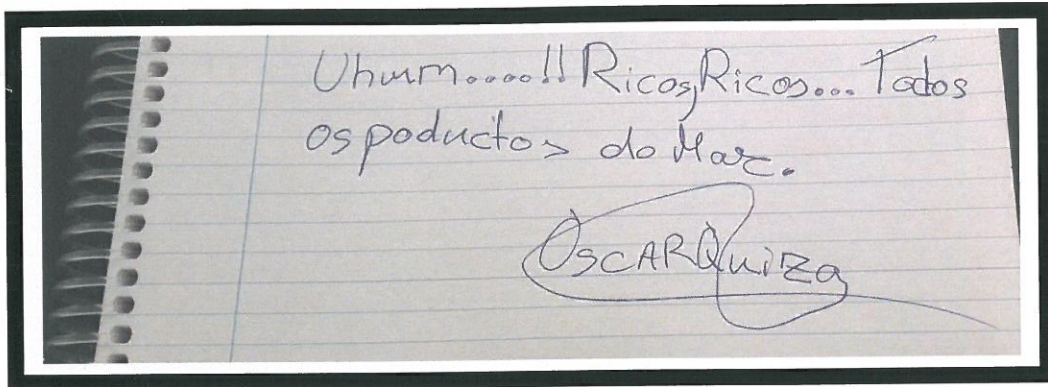 Uhmm....!! Ricos, Ricos... Todos
os poductos do Mar.
OscARQuiza